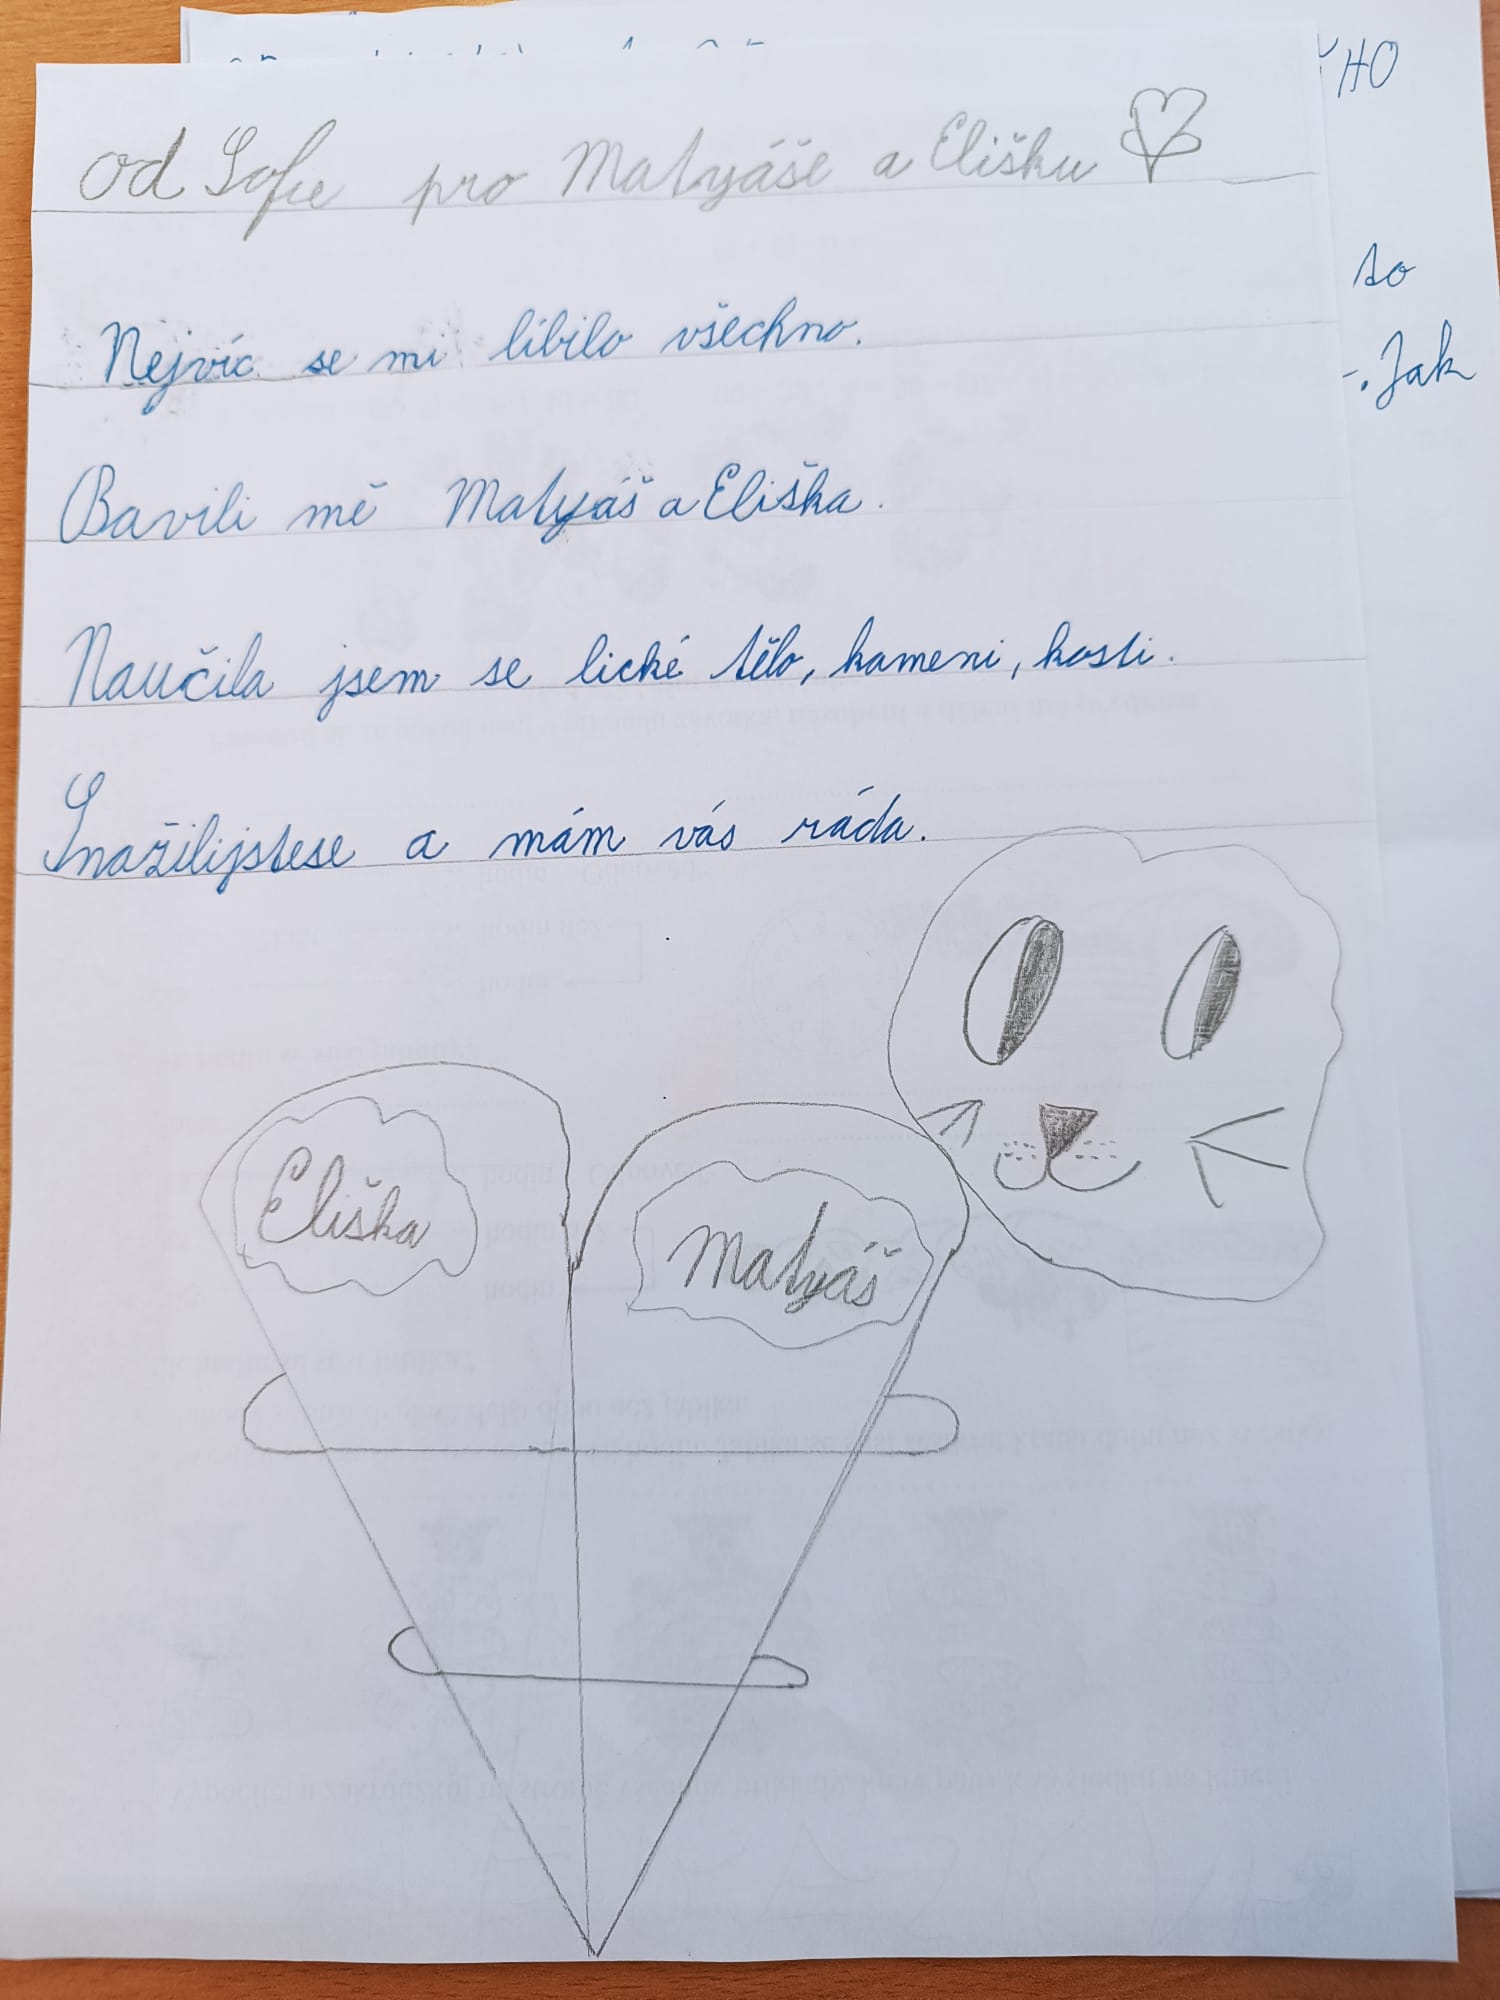 od Sofie pro Matyáše a Elišku
Nejvíc se mi líbilo všechno.
Bavili mě Matyáš a Eliška.
Naučila jsem se lické tělo, kameni, kosti.
Snažilijstese a mám vás ráda.
Eliška
Matyáš
HO
so
. Jak